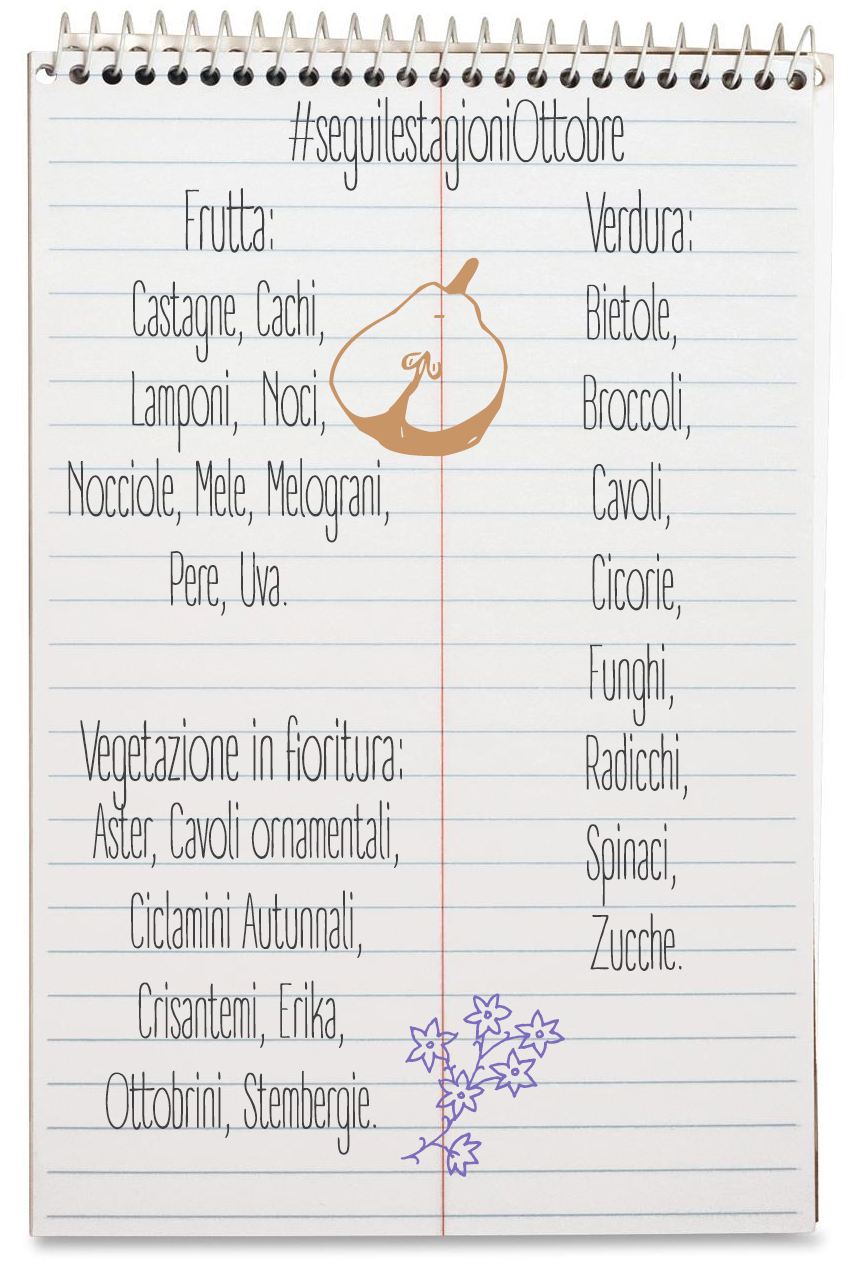 #seguilestagioniOttobre
Frutta:
Castagne, Cachi,
Lamponi, Noci,
Nocciole, Mele, Melograni,
Pere, Uva.
Vegetazione in fioritura:
Aster, Cavoli ornamentali,
Ciclamini Autunnali,
Crisantemi, Erika,
Ottobrini, Stembergie.
Verdura:
Bietole,
Broccoli,
Cavoli,
Cicorie,
Funghi,
Radicchi,
Spinaci,
Zucche.